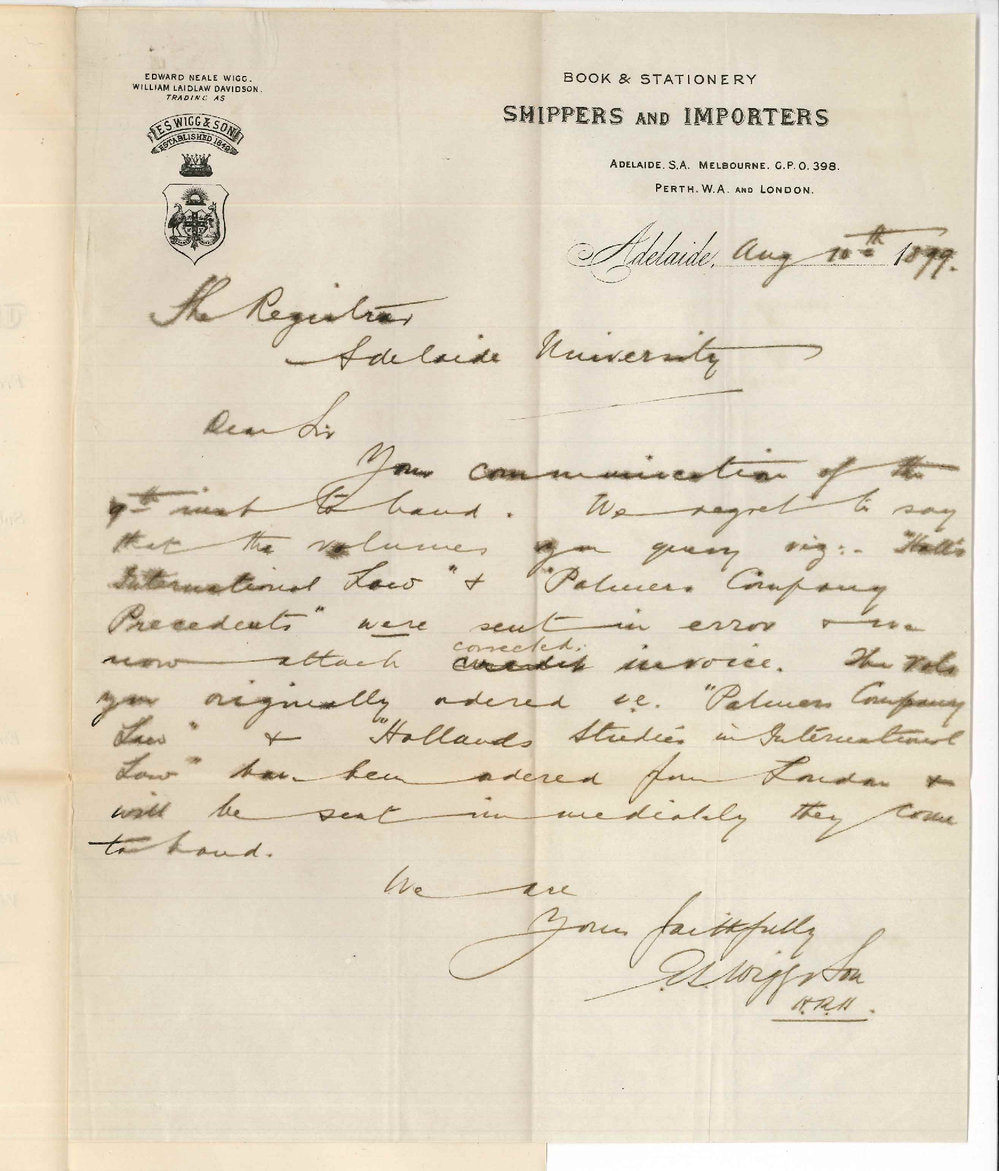 EDWARD NEALE WIGG.
WILLIAM LAIDLAW DAVIDSON.
TRADING AS
E.S. WIGG & SON
ESTABLISHED 1849
BOOK & STATIONERY
SHIPPERS AND IMPORTERS
ADELAIDE. S.A. MELBOURNE. G.P.O. 398.
PERTH. W.A. AND LONDON.
Adelaide, Aug 10th 1899.
The Registrar
Adelaide University
Dear Sir
Your communication of the
9th inst to hand. We regret to say
that the volumes you query viz:- "Hall's
International Law" & "Palmers Company
Precedents" were sent in error & we
corrected
now attach credit invoice. The vols
you originally ordered i.e. "Palmers Company
Law" & "Hollands Studies in International
Law" have been ordered from London &
will be sent immediately they come
to hand.
We are
Yours faithfully
E.S. Wigg & Son